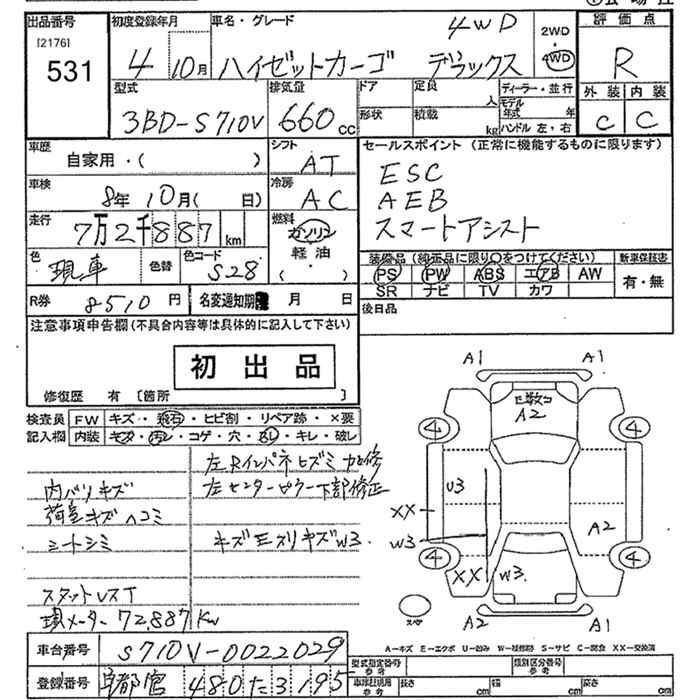 出品番号 初度登録年月 車名・グレード 4WD 2WD 評価点
[2176] 531 4 10月 ハイゼットカーゴ デラックス 4WD R
型式 排気量 ドア 定員 人 ディーラー・並行 外装 内装
3BD-S710V 660cc 形状 積載 kg モデル年式 年 ハンドル 左・右 C C
車歴 自家用・( ) シフト AT セールスポイント(正常に機能するものに限ります)
車検 8年10月( 日) 冷房 AC ESC
AEB
走行 7万2千887km 燃料 ガソリン 軽油 ( ) スマートアシスト
色 現車 色替 色コード S28 装備品(純正品に限り○をつけてください) 新車保証書
PS PW ABS エアB AW 有・無
R券 8510円 名変通知期 月 日 SR ナビ TV カワ
注意事項申告欄(不具合内容等は具体的に記入して下さい) 後日品
初出品
修復歴 有 [箇所 ]
検査員 FW キズ・飛石・ヒビ割・リペア跡・×要
記入欄 内装 キズ・汚レ・コゲ・穴・灰レ・キレ・破レ
左Rインパネヒズミ加修
内バリキズ 左センターピラー下部修正
荷室キズヘコミ
シートシミ キズ エスリキズW3
スタットレスT
現メーター72,887Km
A1 A1
A2
4 4
U3
XX
W3 A2
4 4
XX W3
スペア A2 A1
A=キズ E=エクボ U=凹み W=補修跡 S=サビ C=腐食 XX=交換済
車台番号 S710V-0022029
型式指定番号 参考 類別区分番号 参考
登録番号 宇都宮 480た3195
車検証明用 参考 長さ cm 幅 cm 高さ cm